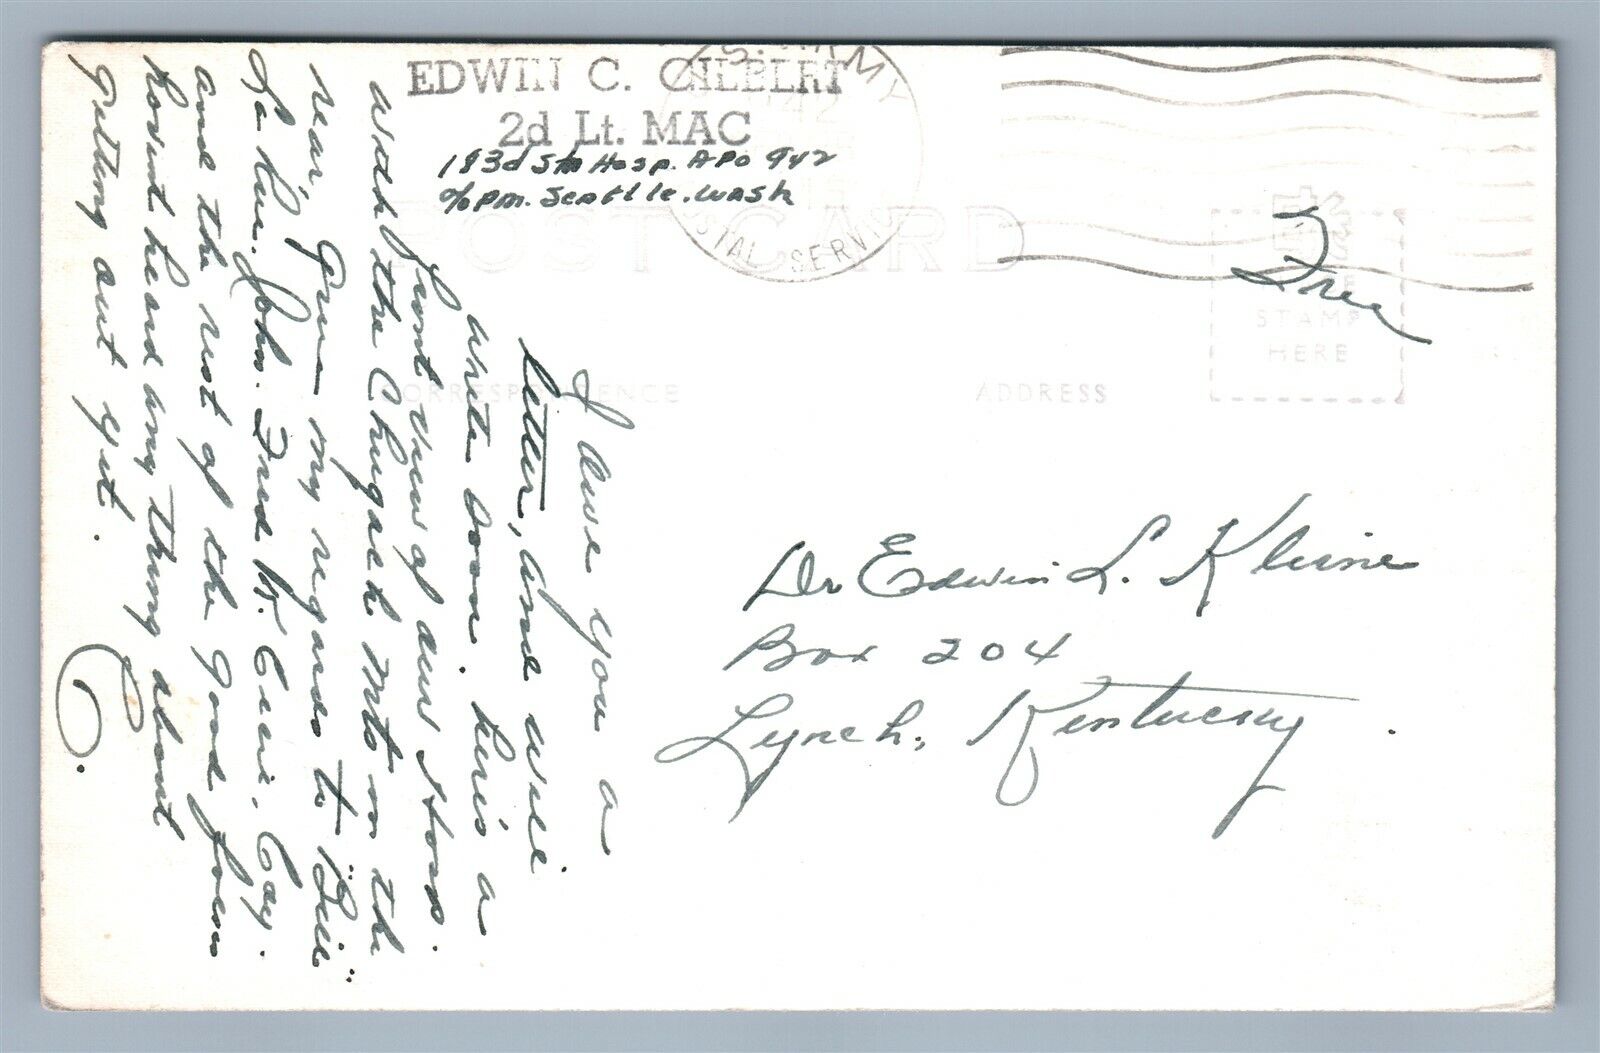 EDWIN C. GILBERT
2d Lt. MAC
183d Sta Hosp. APO 942
c/o P.M. Seattle. Wash
U.S. ARMY
POSTAL SERVICE
Free
POST CARD
CORRESPONDENCE
ADDRESS
PLACE
STAMP
HERE
I owe you a
letter, and will
write soon. here's a
front view of our Hosp.
with the Chugach Mts in the
rear, Give my regards to "Bill"
John. Fred
and the rest of the good foem
Havent heard any thing about
getting out yet.
Dr Edwin L. Kline
Box 204
Lynch, Kentucky.